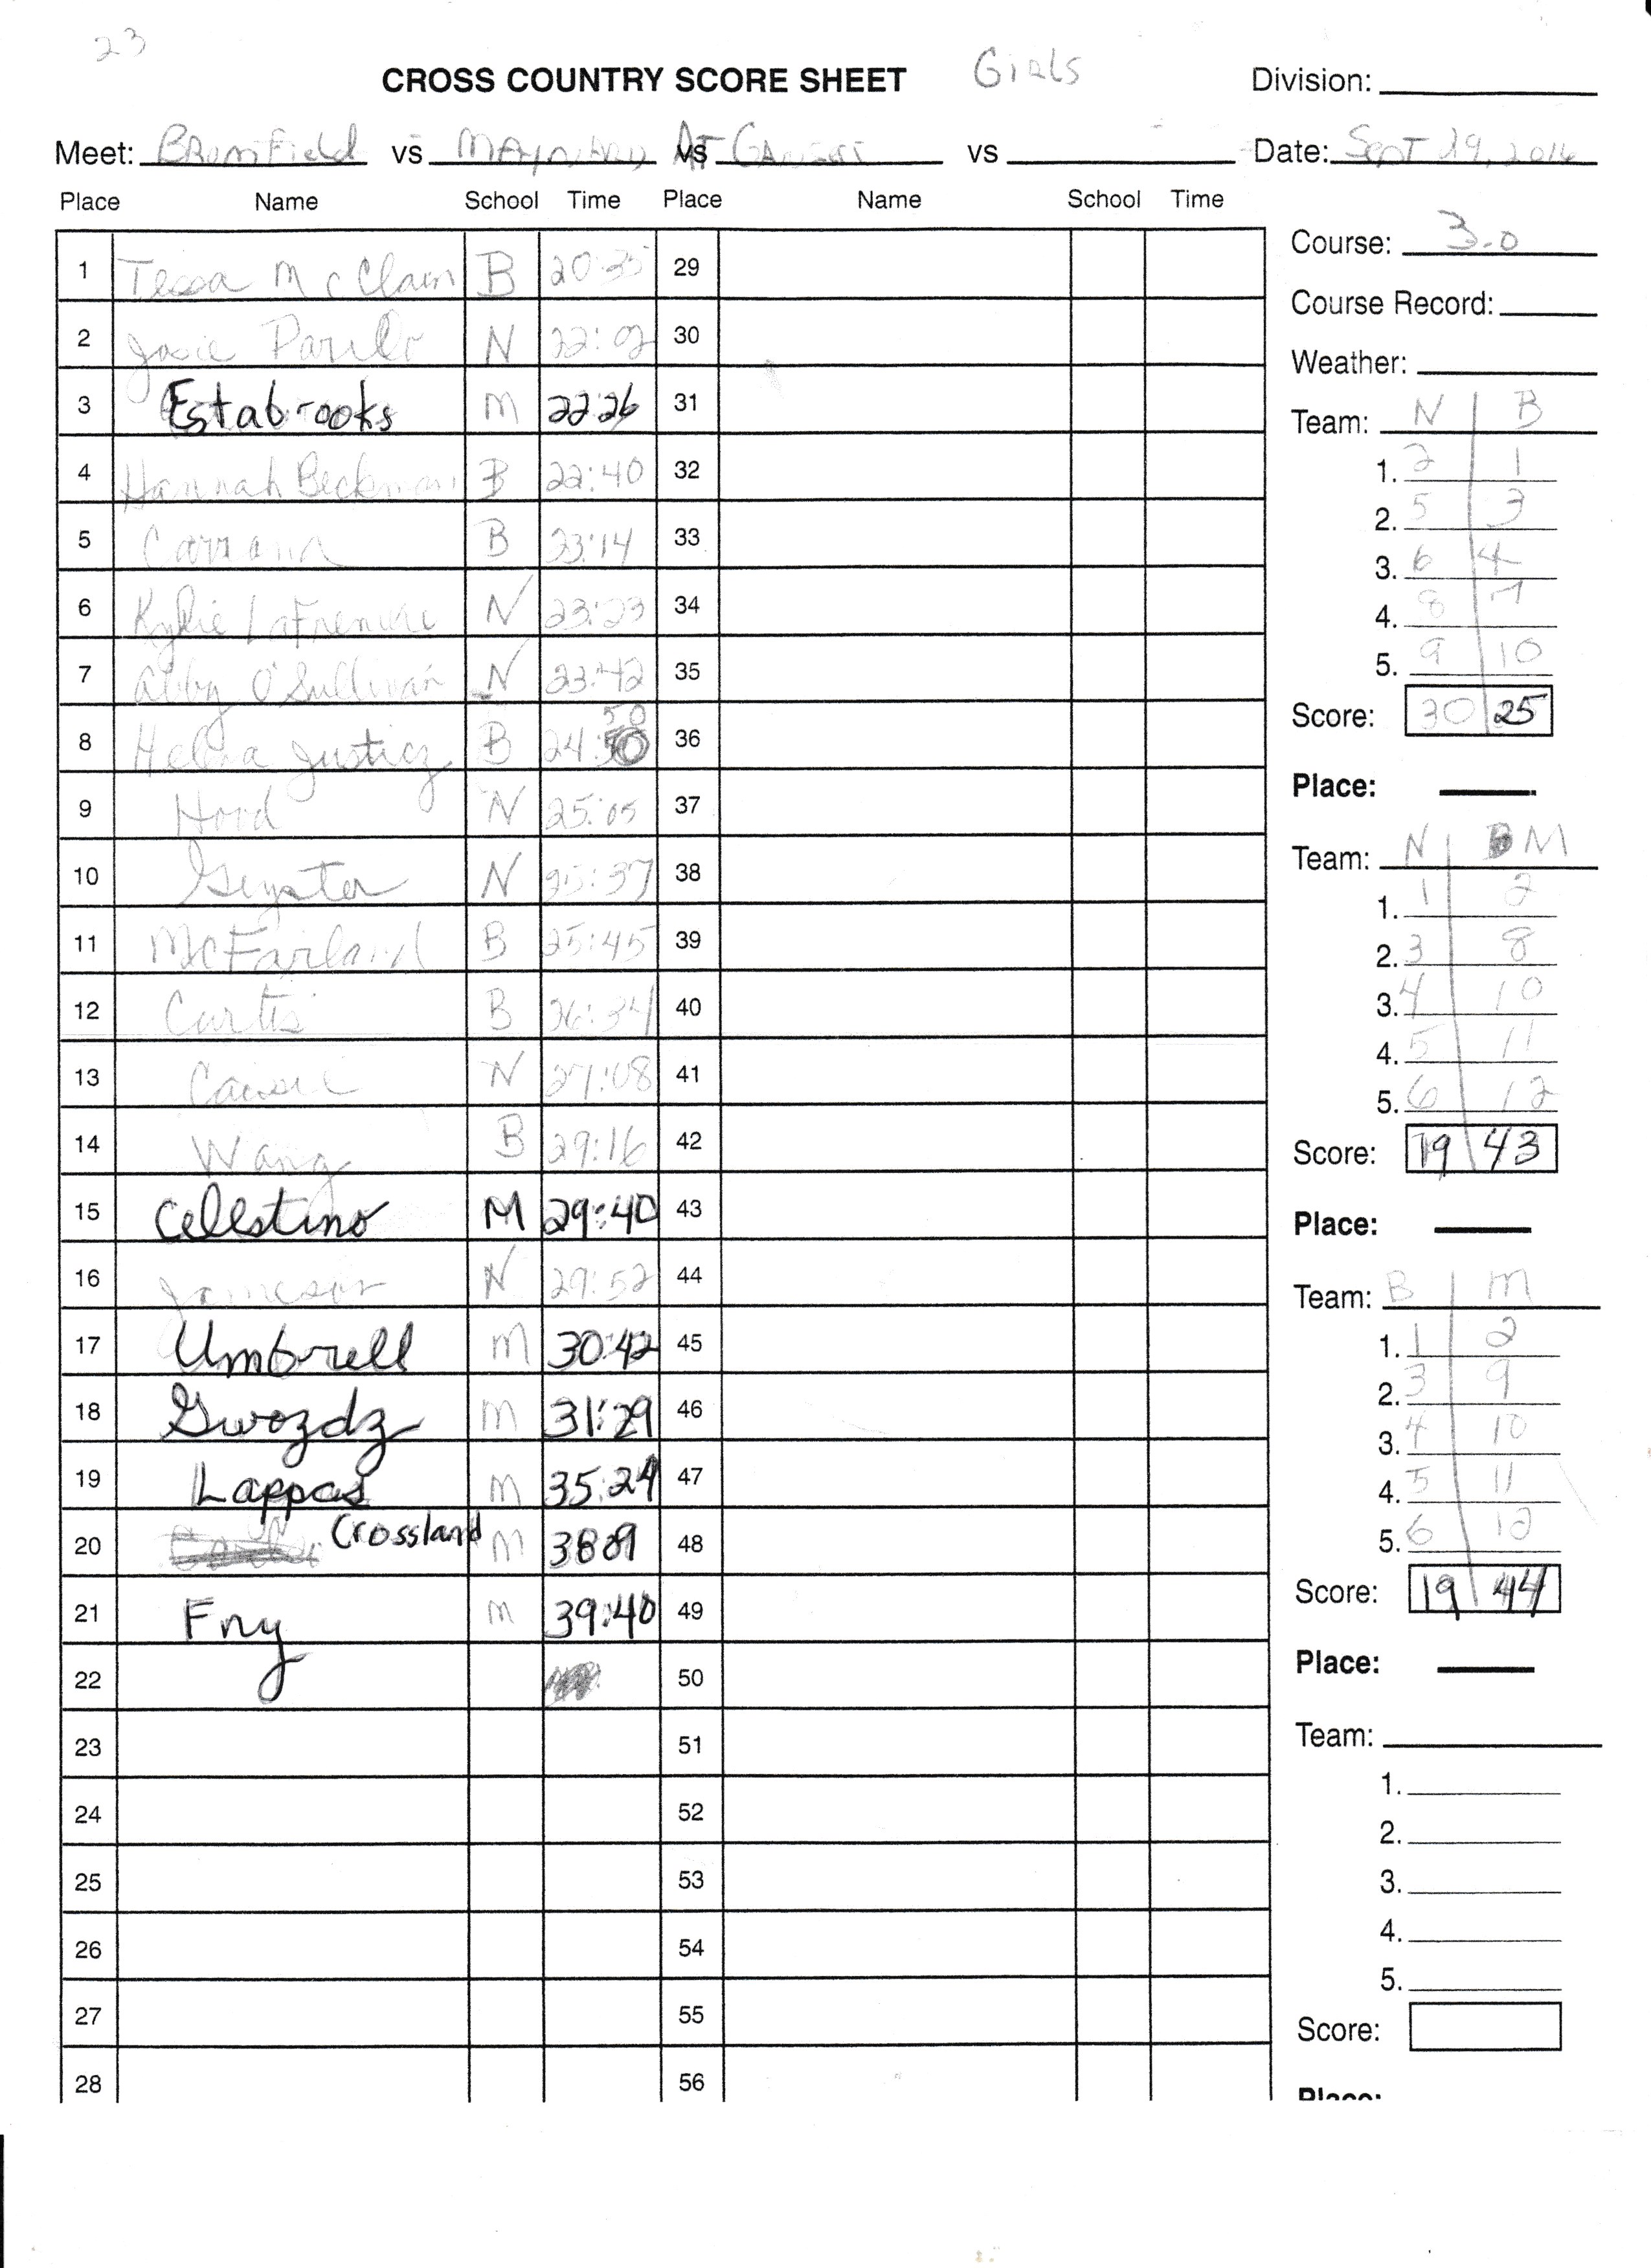 23
CROSS COUNTRY SCORE SHEET Girls Division:
Meet: Bromfield vs Maynard vs At vs Date: Sept 29, 2016
Place Name School Time Place Name School Time
Course: 3.0
Course Record:
Weather:
1 Tessa McClain B 20:35 29
2 Josie N 22:02 30
3 Estabrooks M 22:26 31
4 Hannah Beckman B 22:40 32
5 B 23:14 33
6 Kylie LaFreniere N 23:23 34
7 Abby O'Sullivan N 23:42 35
8 Helena Justicz B 24:50 36
9 Hood N 25:05 37
10 N 25:37 38
11 McFarland B 25:45 39
12 Curtis B 26:34 40
13 N 27:08 41
14 Wang B 29:16 42
15 Celestino M 29:40 43
16 Jameson N 29:52 44
17 Umbrell M 30:42 45
18 Gwozdz M 31:29 46
19 Lappas M 35:24 47
20 Crossland M 38 09 48
21 Fry M 39:40 49
22 50
23 51
24 52
25 53
26 54
27 55
28 56
Team: N B
1. 2 1
2. 5 3
3. 6 4
4. 8 7
5. 9 10
Score: 30 25
Place:
Team: N M
1. 1 2
2. 3 8
3. 4 10
4. 5 11
5. 6 12
Score: 19 43
Place:
Team: B M
1. 1 2
2. 3 9
3. 4 10
4. 5 11
5. 6 12
Score: 19 44
Place:
Team:
1.
2.
3.
4.
5.
Score:
Place: